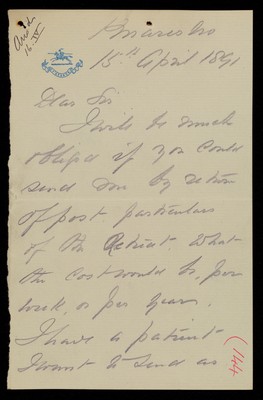 16. IV
15th April 1891
Dear Sir
I will be much
obliged if you could
send me by return
of post particulars
of the Retreat. What
the cost would be, per
week, or per year.
I have a patient
I want to send as
(144